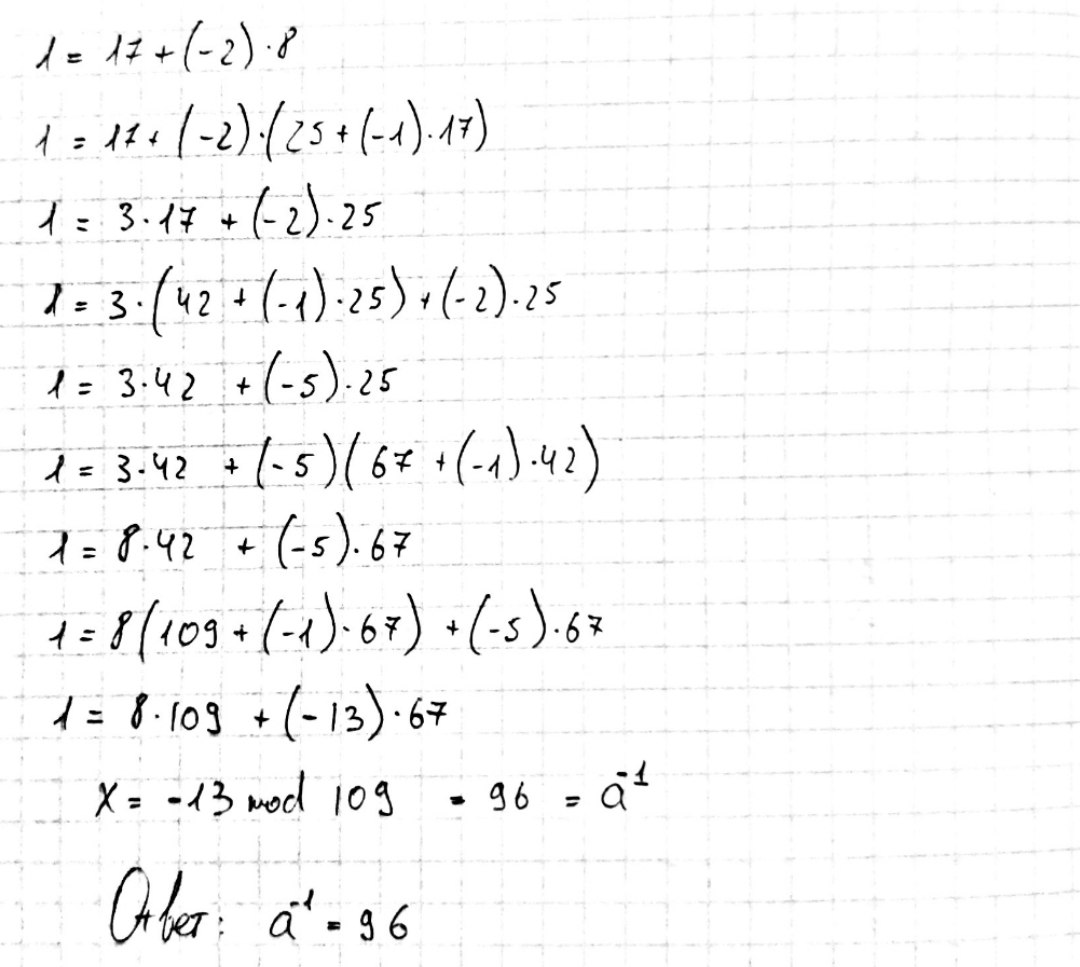 1 = 17 + (-2) · 8
1 = 17 + (-2) · (25 + (-1) · 17)
1 = 3 · 17 + (-2) · 25
1 = 3 · (42 + (-1) · 25) + (-2) · 25
1 = 3 · 42 + (-5) · 25
1 = 3 · 42 + (-5)(67 + (-1) · 42)
1 = 8 · 42 + (-5) · 67
1 = 8(109 + (-1) · 67) + (-5) · 67
1 = 8 · 109 + (-13) · 67
x = -13 mod 109 = 96 = a⁻¹
Ответ: a⁻¹ = 96